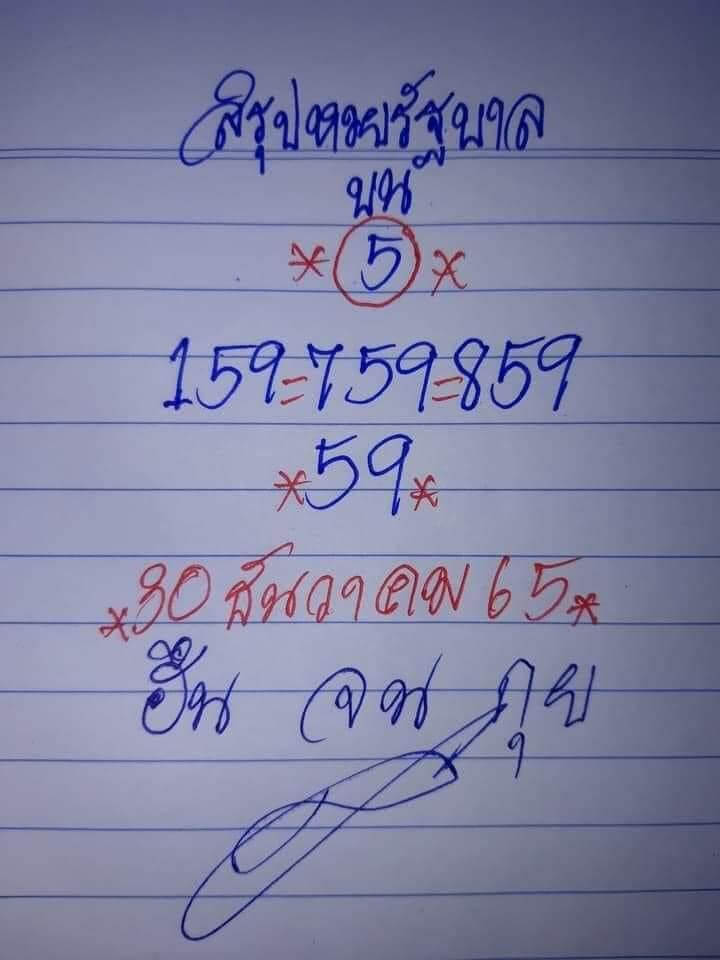 สรุปหวยรัฐบาล
บน
* 5 *
159=759=859
*59*
*30 ธันวาคม 65*
จน